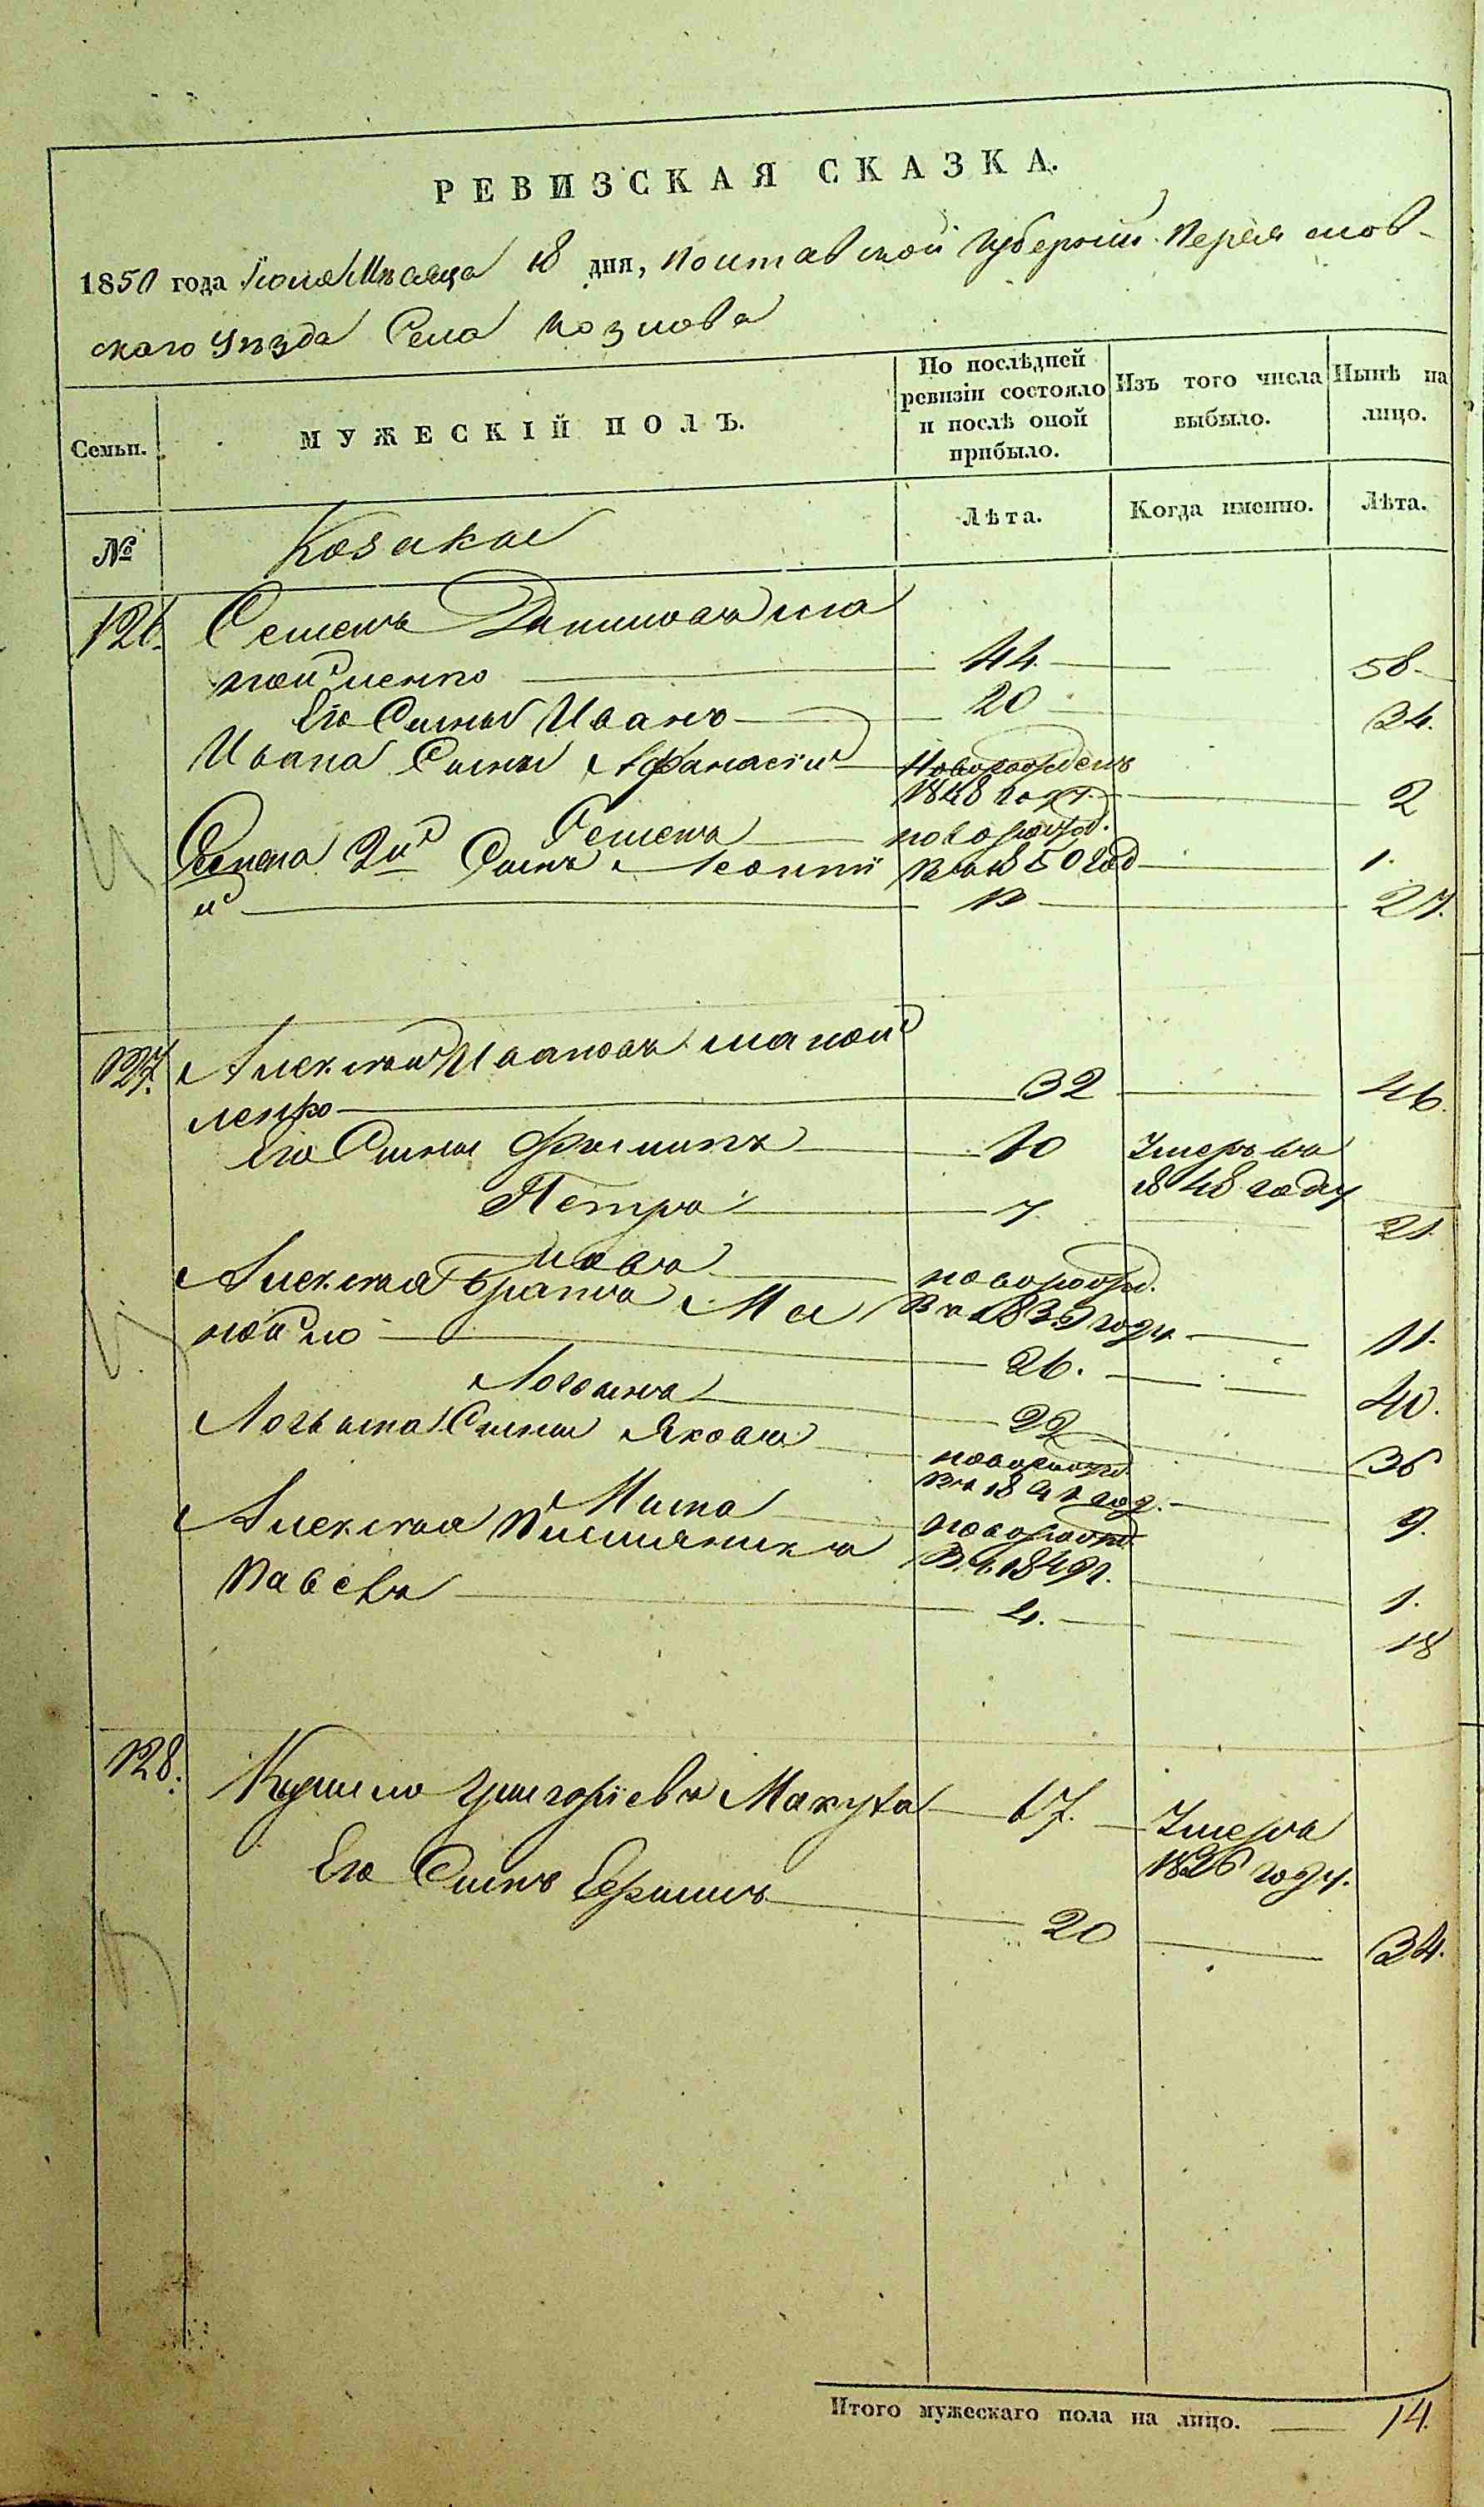 РЕВИЗСКАЯ СКАЗКА.
1850 года Іюля Мѣсяца 18 дня, Полтавской Губерніи Переяслов-
скаго Уѣзда Села Козлова
Семьи. МУЖЕСКІЙ ПОЛЪ. По послѣдней ревизіи состояло и послѣ оной прибыло. Изъ того числа выбыло. Нынѣ на лицо.
№ Козаки Лѣта. Когда именно. Лѣта.
126. Семенъ Даниловъ Ма
ной ленко 44. 58.
Его Сынъ Иванъ 20 34.
Ивана Сыны Афанасій Новорожденъ
1848 года 2
Семенъ новорожд.
Семена 2й Сынъ Леонтій 1850 год 1.
й 13 27.
127. Алексѣй Ивановъ Маной
ленко 32 46.
Его Сыны Филипъ 10 Умеръ въ
1848 году
Петръ 7 21
Іовъ новорожд.
Алексѣя братья Ма въ 1839 году 11.
нойло 26. 40.
Логвинъ 22 36
Логвина Сыны Яковъ новорожд.
въ 1841 год. 9.
Никита новорожд.
Алексѣя Племянникъ въ 1849 г. 1.
Павелъ 4. 18
128. Кирило Григоріевъ Макуха 67. Умеръ
1836 году.
Его Сынъ Ефимъ 20 34.
Итого мужескаго пола на лицо. 14.